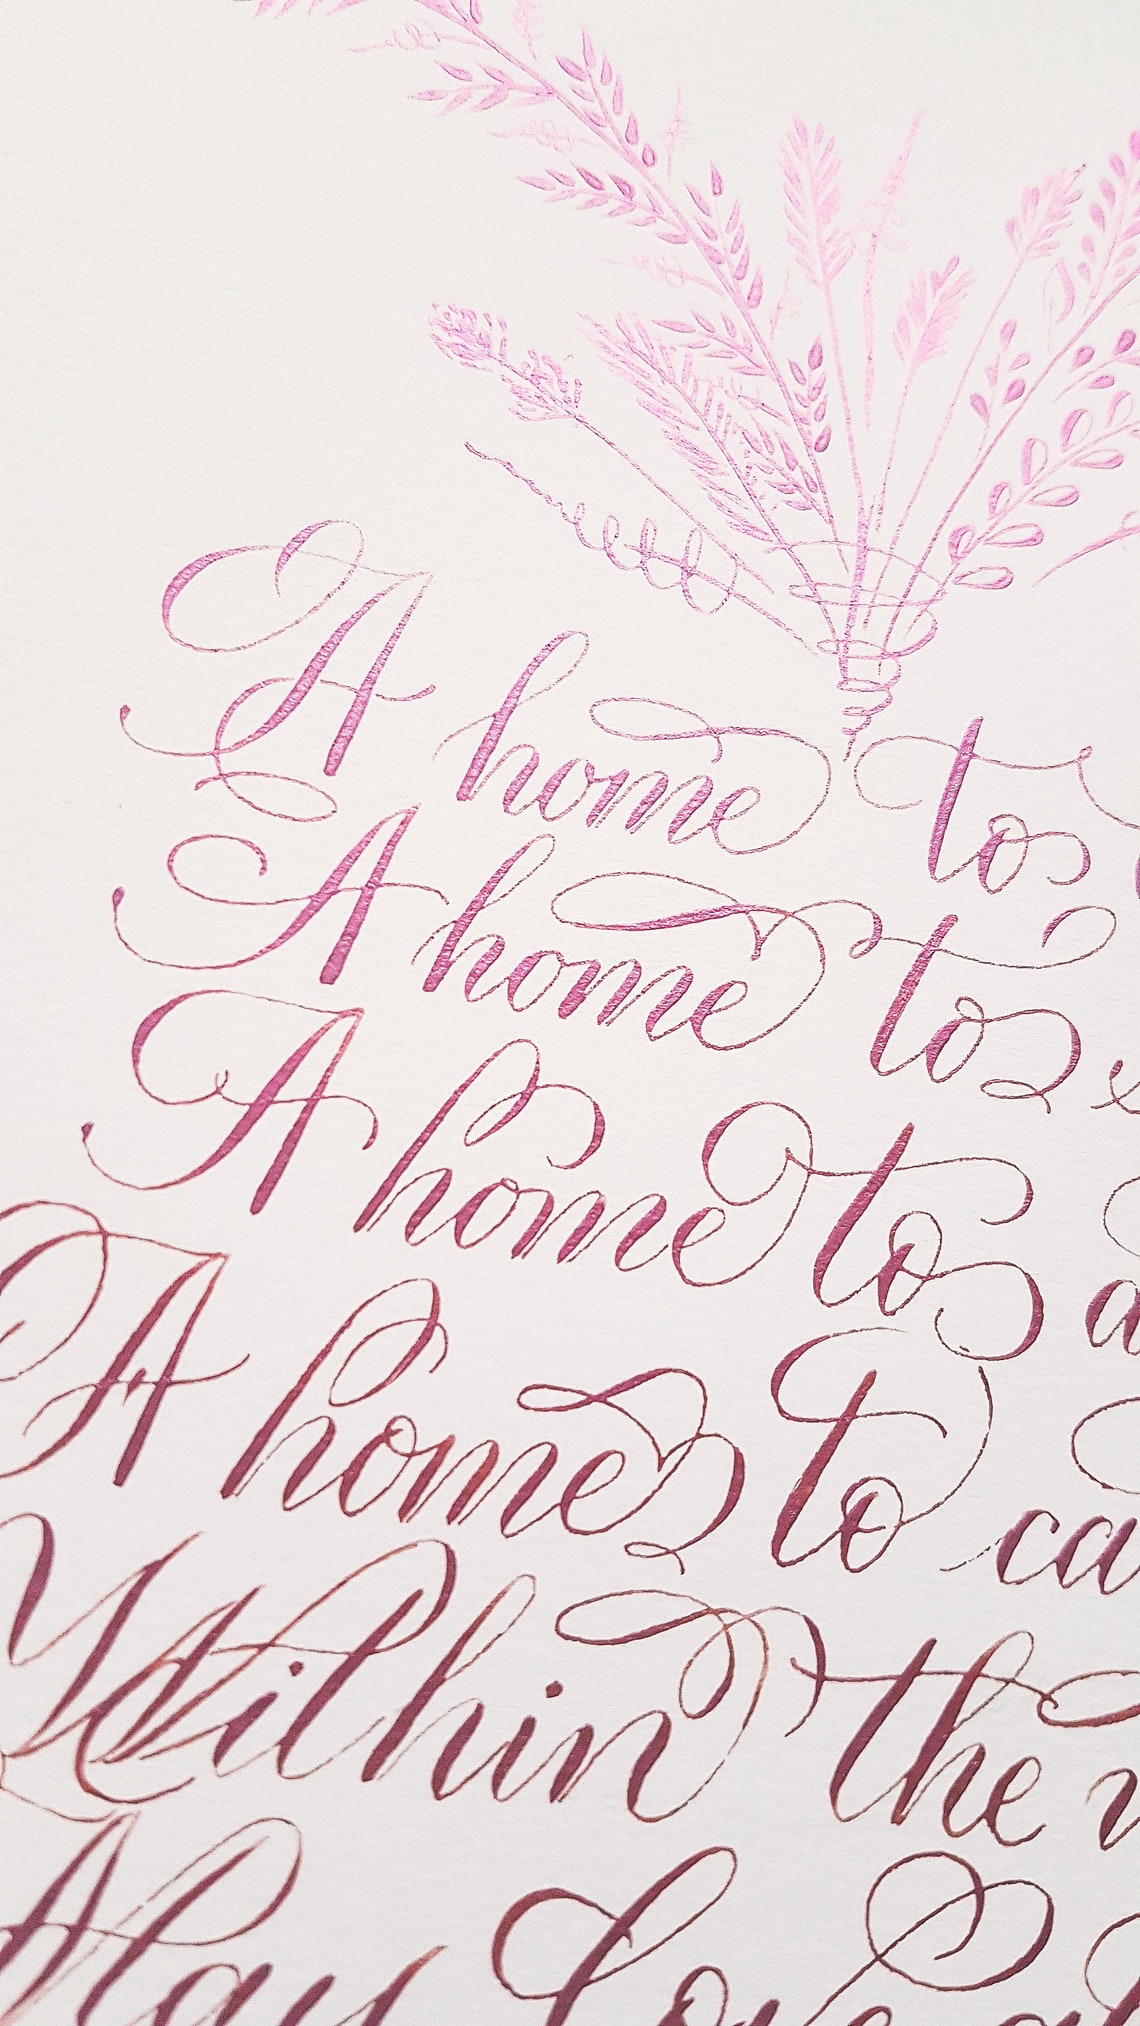 A home to
A home to
A home to
A home to
Within the
May Love